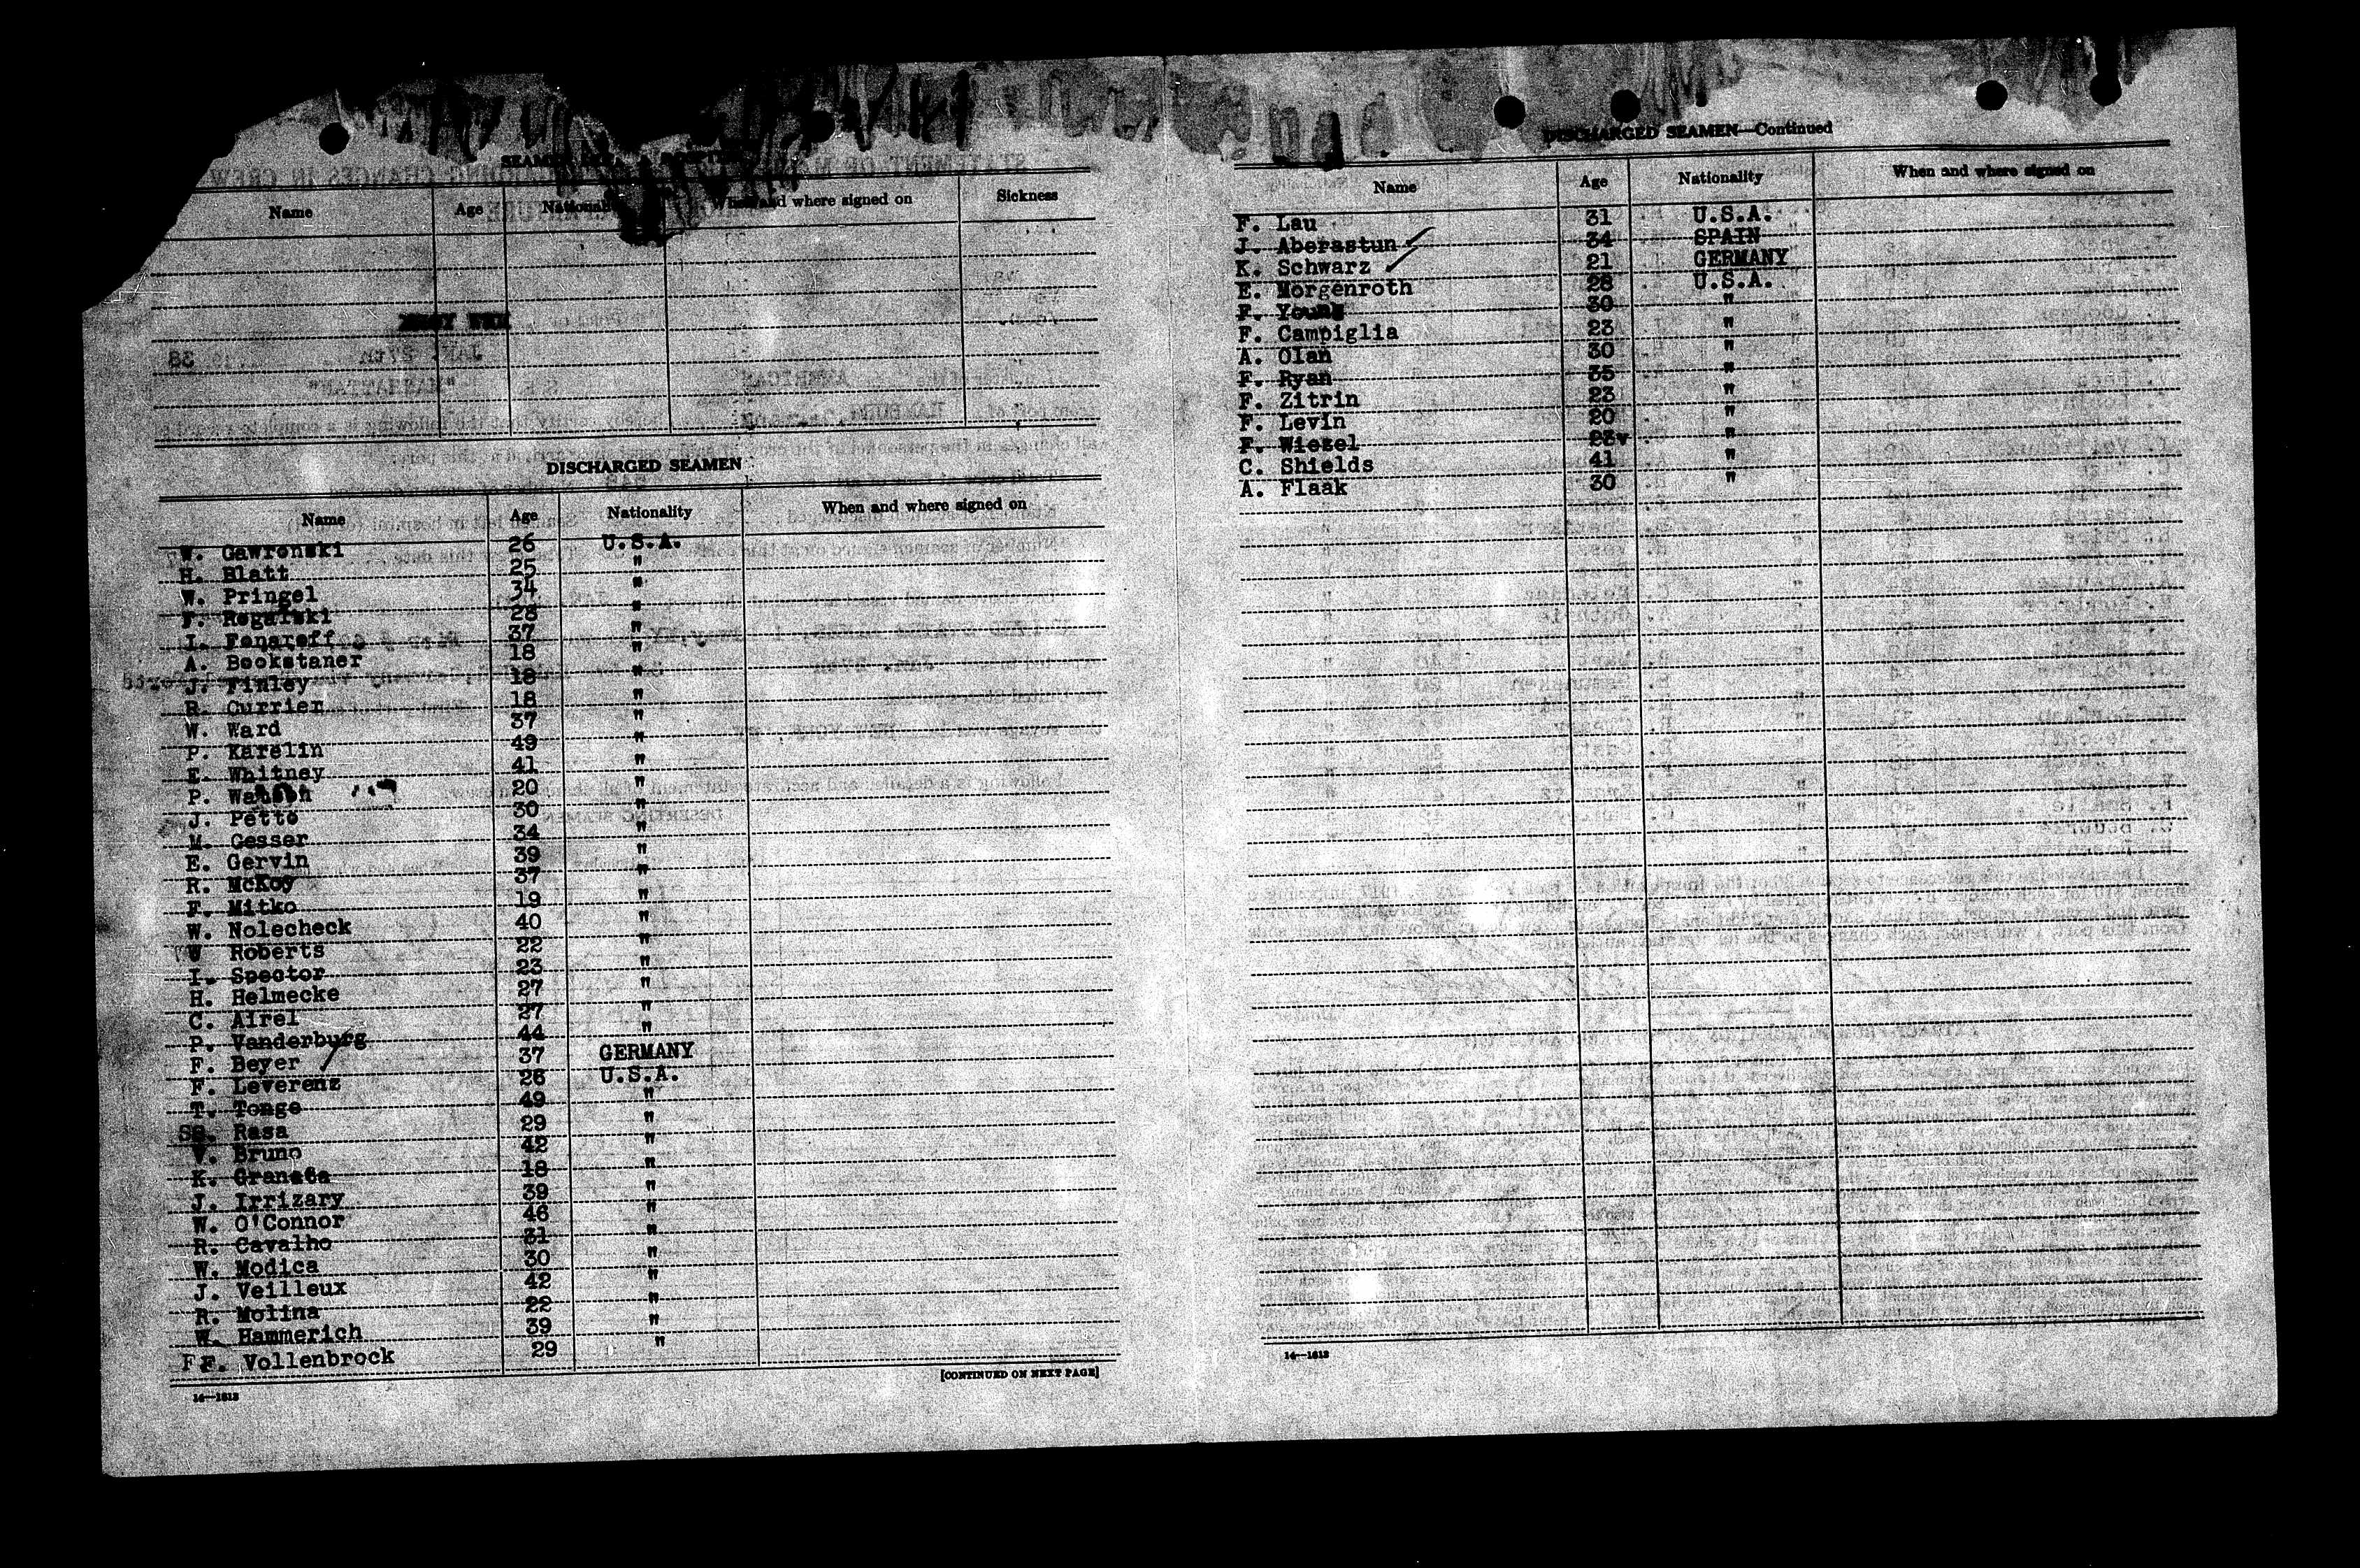 Name Age When and where signed on Sickness
DISCHARGED SEAMEN
Name Age Nationality When and where signed on
W. Gawronski 26 U.S.A.
H. Blatt 25 "
W. Pringel 34 "
F. Rogalski 28 "
I. Fenareff 37 "
A. Bookstaner 18 "
J. Finley 18 "
R. Currier 18 "
W. Ward 37 "
P. Karelin 49 "
E. Whitney 41 "
P. 20 "
J. Petto 30 "
M. Gesser 34 "
E. Gervin 39 "
R. McKoy 37 "
F. Mitko 19 "
W. Nolecheck 40 "
Roberts 22 "
I. Spector 23 "
H. Helmecke 27 "
C. Airel 27 "
P. Vanderburg 44 "
F. Beyer 37 GERMANY
F. Leverenz 26 U.S.A.
T. Tonge 49 "
Rasa 29 "
V. Bruno 42 "
K. 18 "
J. Irrizary 39 "
W. O'Connor 46 "
R. Cavalho 31 "
W. Modica 30 "
J. Veilleux 42 "
R. Molina 22 "
W. Hammerich 39 "
F. Vollenbrock 29 "
[CONTINUED ON NEXT PAGE]
14—1613
DISCHARGED SEAMEN—Continued
Name Age Nationality When and where signed on
F. Lau 31 U.S.A.
J. Aberastun 34 SPAIN
K. Schwarz 21 GERMANY
E. Morgenroth 28 U.S.A.
F. Young 30 "
F. Campiglia 23 "
A. Olan 30 "
F. Ryan 35 "
F. Zitrin 23 "
F. Levin 20 "
F. Wiesel 23v "
C. Shields 41 "
A. Flaak 30 "
14—1613